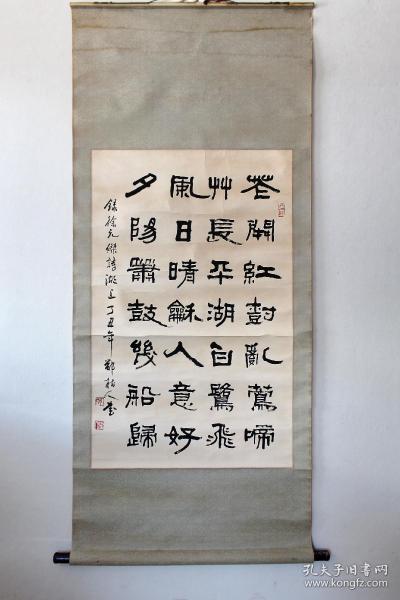 花開紅尌亂鶯啼
艸長平湖白鷺飛
風日晴龢人意好
夕陽簫鼓幾船歸
錄徐元傑詩湖上丁丑年 鄭柏人書
孔夫子旧书网
http://www.kongfz.com/